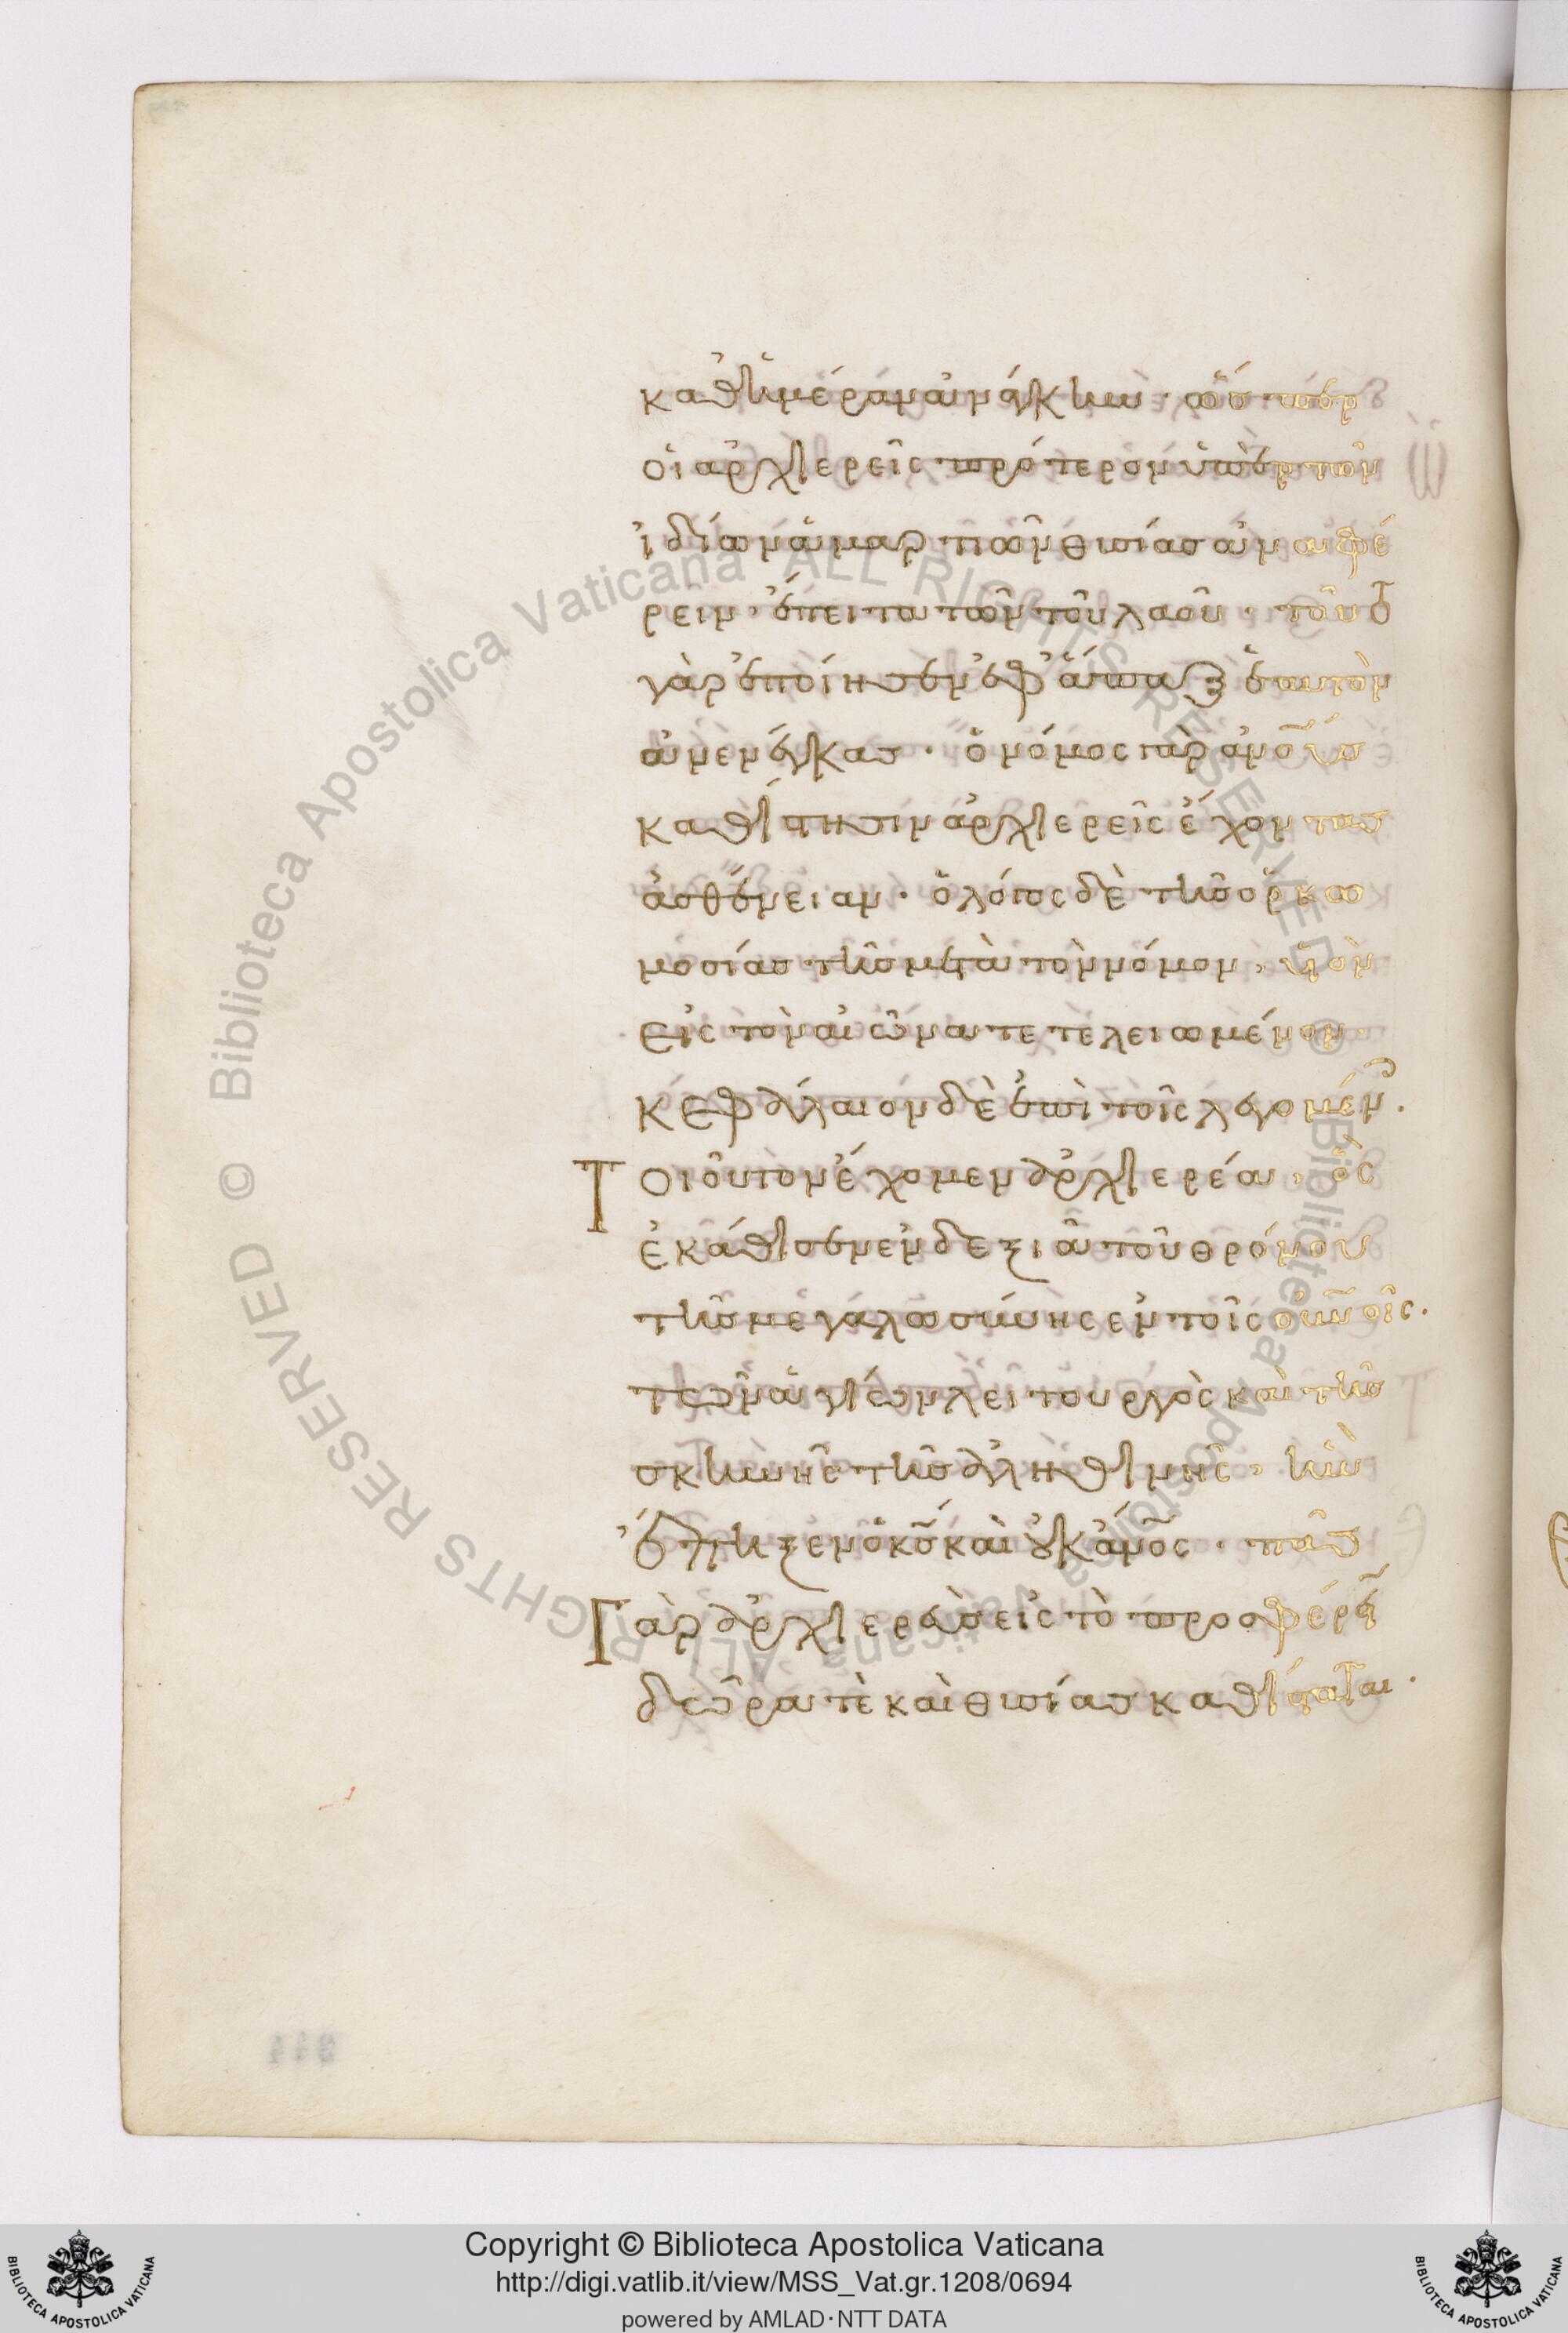 καθ ἡμέραν ἀνάγκην· ὥσπερ
οἱ ἀρχιερεῖς πρότερον ὑπὲρ τῶν
ἰδίων ἁμαρτιῶν θυσίας ἀναφέ
ρειν· ἔπειτα τῶν τοῦ λαοῦ· τοῦτο
γὰρ ἐποίησεν ἐφ ἅπαξ ἑαυτὸν
ἀνενέγκας· ὁ νόμος γὰρ ἀνους
καθίστησιν ἀρχιερεῖς ἔχοντας
ἀσθένειαν· ὁ λόγος δὲ τῆς ὁρκω
μοσίας τῆς μετὰ τὸν νόμον, υἱὸν
εἰς τὸν αἰῶνα τετελειωμένον
κεφάλαιον δὲ ἐπὶ τοῖς λεγομέν.
Τοιοῦτον ἔχομεν ἀρχιερέα, ὃς
ἐκάθισεν ἐν δεξιᾷ τοῦ θρόνου
τῆς μεγαλωσύνης ἐν τοῖς οὐνοῖς.
τῶν ἁγίων λειτουργὸς καὶ τῆς
σκηνῆς τῆς ἀληθινῆς, ἣν
ἔπηξεν ὁ κς καὶ οὐκ ἄνος· πᾶς
Γὰρ ἀρχιερεὺς εἰς τὸ προσφέρειν
δῶρά τε καὶ θυσίας καθίσταται·
344
Copyright © Biblioteca Apostolica Vaticana
http://digi.vatlib.it/view/MSS_Vat.gr.1208/0694
powered by AMLAD·NTT DATA
BIBLIOTECA APOSTOLICA VATICANA
BIBLIOTECA APOSTOLICA VATICANA
© Biblioteca Apostolica Vaticana ALL RIGHTS RESERVED
© Biblioteca Apostolica Vaticana ALL RIGHTS RESERVED